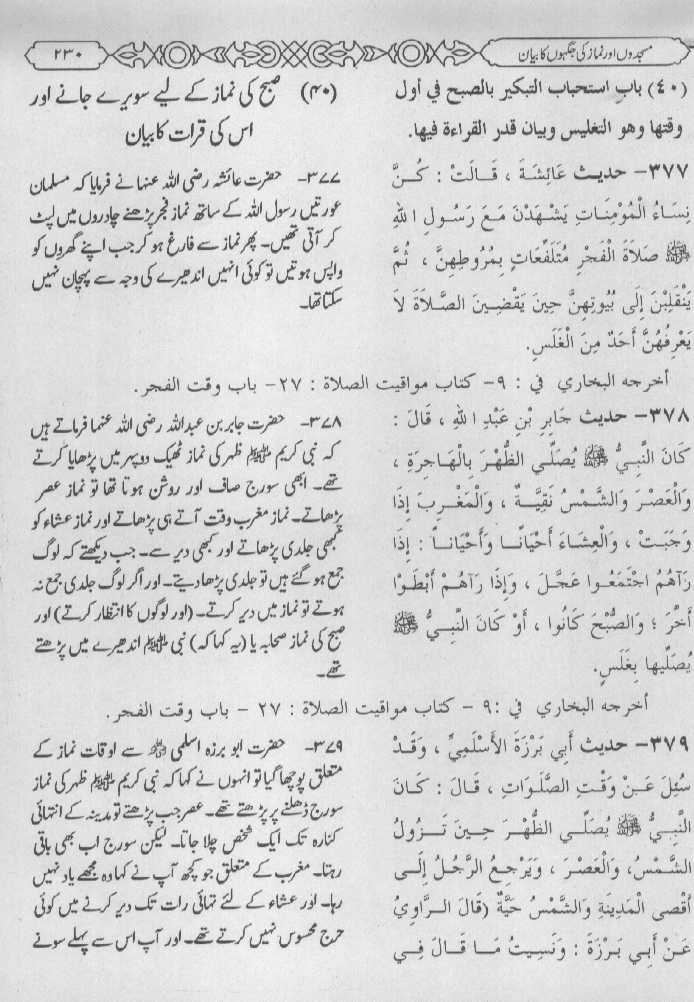 مسجدوں اور نماز کی جگہوں کا بیان
۲۳۰
(٤٠) باب استحباب التبكير بالصبح في أول
وقتها وهو التغليس وبيان قدر القراءة فيها.
(۴۰) صبح کی نماز کے لیے سویرے جانے اور
اس کی قرات کا بیان
٣٧٧- حديث عَائِشَةَ ، قَالَتْ : كُنَّ
نِسَاءُ الْمُؤْمِنَاتِ يَشْهَدْنَ مَعَ رَسُولِ اللهِ
ﷺ صَلاَةَ الْفَجْرِ مُتَلَفِّعَاتٍ بِمُرُوطِهِنَّ ، ثُمَّ
يَنْقَلِبْنَ إِلَى بُيُوتِهِنَّ حِينَ يَقْضِينَ الصَّلاَةَ لاَ
يَعْرِفُهُنَّ أَحَدٌ مِنَ الْغَلَسِ.
۳۷۷- حضرت عائشہ رضی اللہ عنہا نے فرمایا کہ مسلمان
عورتیں رسول اللہ کے ساتھ نماز فجر پڑھنے چادروں میں لپٹ
کر آتی تھیں۔ پھر نماز سے فارغ ہو کر جب اپنے گھروں کو
واپس ہوتیں تو کوئی انہیں اندھیرے کی وجہ سے پہچان نہیں
سکتا تھا۔
أخرجه البخاري في : ٩- كتاب مواقيت الصلاة : ٢٧- باب وقت الفجر.
٣٧٨- حديث جَابِرِ بْنِ عَبْدِ اللهِ ، قَالَ :
كَانَ النَّبِيُّ ﷺ يُصَلِّي الظُّهْرَ بِالْهَاجِرَةِ ،
وَالْعَصْرَ وَالشَّمْسُ نَقِيَّةٌ ، وَالْمَغْرِبَ إِذَا
وَجَبَتْ ، وَالْعِشَاءَ أَحْيَانًا وَأَحْيَاناً : إِذَا
رَآهُمُ اجْتَمَعُوا عَجَّلَ ، وَإِذَا رَآهُمْ أَبْطَوْا
أَخَّرَ ؛ وَالصُّبْحَ كَانُوا ، أَوْ كَانَ النَّبِيُّ ﷺ
يُصَلِّيها بِغَلَسٍ.
۳۷۸- حضرت جابر بن عبداللہ رضی اللہ عنہما فرماتے ہیں
کہ نبی کریم ﷺ ظہر کی نماز ٹھیک دوپہر میں پڑھایا کرتے
تھے۔ ابھی سورج صاف اور روشن ہوتا تھا تو نماز عصر
پڑھاتے۔ نماز مغرب وقت آتے ہی پڑھاتے اور نماز عشاء کو
کبھی جلدی پڑھاتے اور کبھی دیر سے۔ جب دیکھتے کہ لوگ
جمع ہو گئے ہیں تو جلدی پڑھا دیتے۔ اور اگر لوگ جلدی جمع نہ
ہوتے تو نماز میں دیر کرتے۔ (اور لوگوں کا انتظار کرتے) اور
صبح کی نماز صحابہ یا (یہ کہا کہ) نبی ﷺ اندھیرے میں پڑھتے
تھے۔
أخرجه البخاري في :٩ - كتاب مواقيت الصلاة : ٢٧ - باب وقت الفجر.
٣٧٩- حديث أَبِي بَرْزَةَ الأَسْلَمِيِّ ، وَقَدْ
سُئِلَ عَنْ وَقْتِ الصَّلَوَاتِ ، قَالَ : كَانَ
النَّبِيُّ ﷺ يُصَلِّي الظُّهْرَ حِينَ تَزُولُ
الشَّمْسُ، وَالْعَصْرَ ، وَيَرْجِعُ الرَّجُلُ إِلَى
أَقْصى الْمَدِينَةِ وَالشَّمْسُ حَيَّةٌ (قَالَ الرَّاوِيُ
عَنْ أَبِي بَرْزَةَ : وَنَسِيتُ مَا قَالَ فِي
۳۷۹- حضرت ابو برزہ اسلمی ؓ سے اوقات نماز کے
متعلق پوچھا گیا تو انہوں نے کہا کہ نبی کریم ﷺ ظہر کی نماز
سورج ڈھلنے پر پڑھتے تھے۔ عصر جب پڑھتے تو مدینہ کے انتہائی
کنارہ تک ایک شخص چلا جاتا۔ لیکن سورج اب بھی باقی
رہتا۔ مغرب کے متعلق جو کچھ آپ نے کہا وہ مجھے یاد نہیں
رہا۔ اور عشاء کے لئے تہائی رات تک دیر کرنے میں کوئی
حرج محسوس نہیں کرتے تھے۔ اور آپ اس سے پہلے سونے